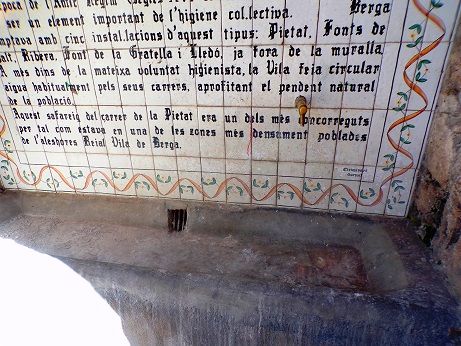 època de l'Antic Règim
ser un element important de l'higiene col.lectiva. Berga
comptava amb cinc instal.lacions d'aquest tipus: Pietat, Fonts de
Dalt, Ribera, Font de la Gratella i Lledó, ja fora de la muralla.
A més dins de la mateixa voluntat higienista, la Vila feia circular
aigua habitualment pels seus carrers, aprofitant el pendent natural
de la població.
Aquest safareig del carrer de la Pietat era un dels més concorreguts
per tal com estava en una de les zones més densament poblades
de l'aleshores Reial Vila de Berga.